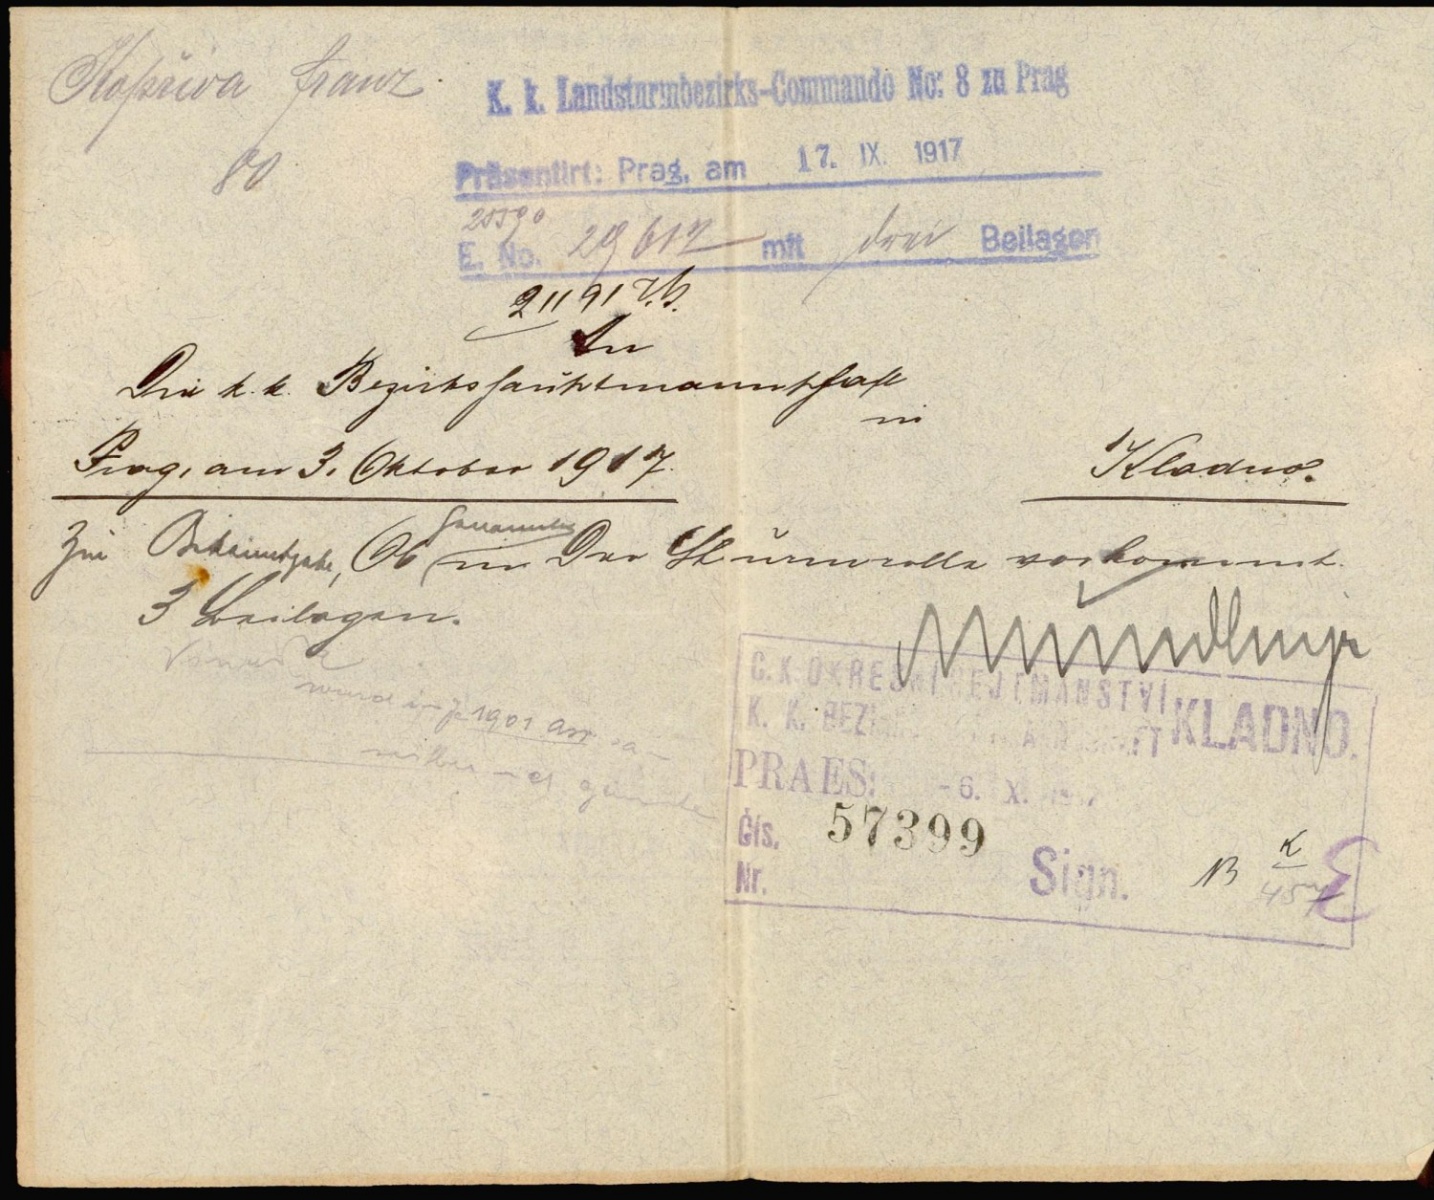 Kopřiva Franz
80
K. k. Landsturmbezirks-Commando No: 8 zu Prag
Präsentirt: Prag, am 17. IX. 1917
E. No. 29617 mit drei Beilagen
21191
An
Die k. k. Bezirkshauptmannschaft
in
Prag, am 3. Oktober 1917.
Kladno.
Zur Bekanntgabe, Ob Genannter in Der Sturmrolle vorkommt.
3 Beilagen.
1901
C. K. OKRESNÍ HEJTMANSTVÍ
K. K. BEZIRKSHAUPTMANNSCHAFT KLADNO.
PRAES: -6. X. 1917
Čís. 57399
Nr.
Sign. B K
457